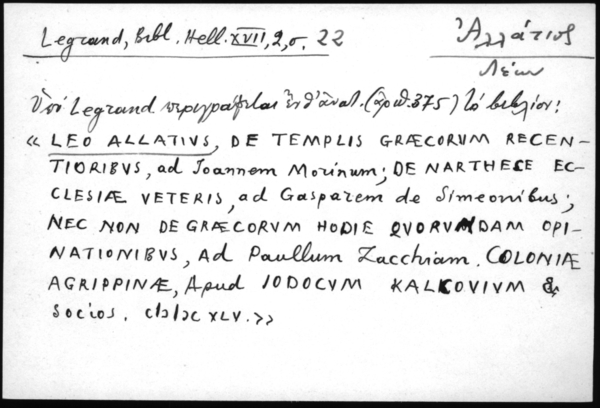 Legrand, Bibl. Hell. XVII, 2, σ. 22
Ἀλλάτιος
Λέων
Ὑπό Legrand περιγράφεται ἐνθ' ἀνωτ. (ἀριθ. 375) τό βιβλίον:
« LEO ALLATIVS, DE TEMPLIS GRÆCORVM RECEN-
TIORIBVS, ad Joannem Morinum; DE NARTHECE EC-
CLESIÆ VETERIS, ad Gasparem de Simeonibus;
NEC NON DE GRÆCORVM HODIE QVORVNDAM OPI-
NATIONIBVS, Ad Paullum Zacchiam. COLONIÆ
AGRIPPINÆ, Apud IODOCVM KALCOVIVM &
Socios. cIɔ Iɔc XLV. »